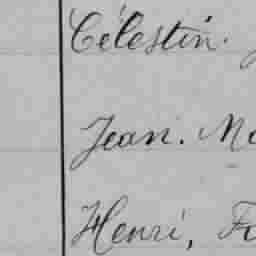 Célestin.
Jean. Ma
Henri, Fo